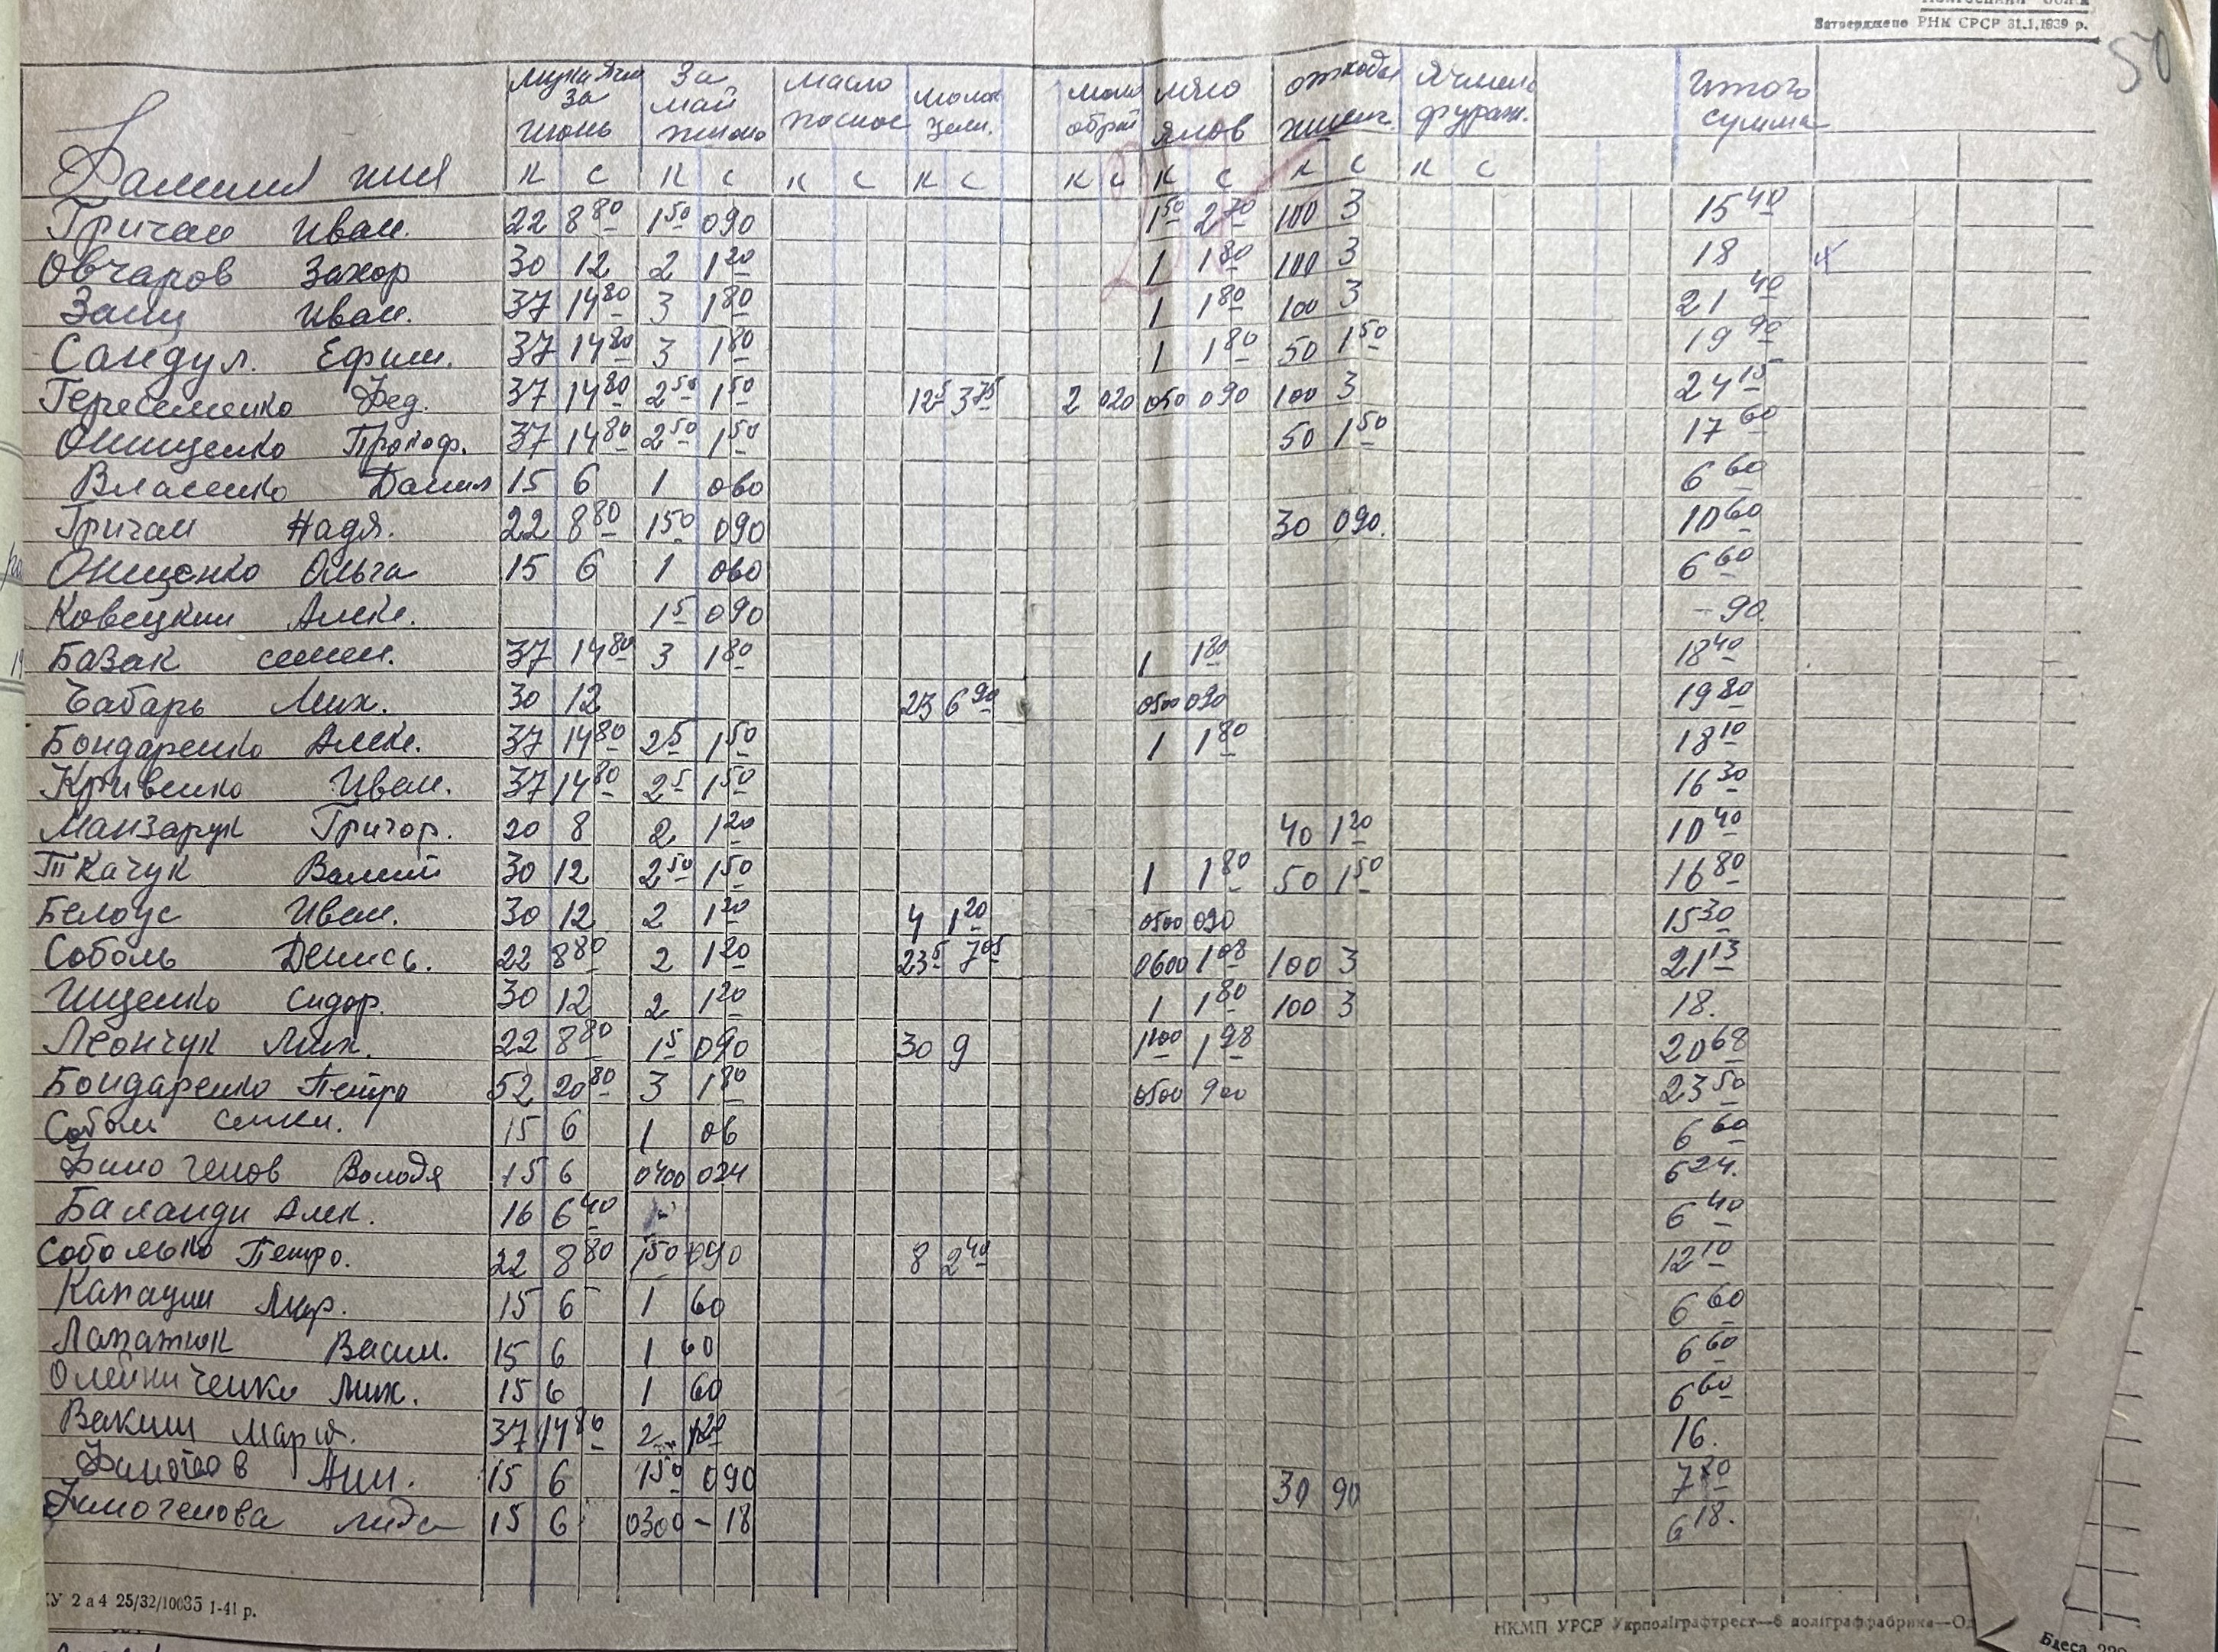 Затверджено РНК СРСР 31.1.1939 р.
50
Фамилия имя За июнь За май пшено Масло постное Молок цельн. Моло обрат Мясо ялов отходы пшен. Ячмень фураж. Итого сумма
К С К С К С К С К С К С К С К С
Гричан Иван. 22 8 80 1 50 0 90 1 50 2 70 100 3 15 40
Овчаров Захор 30 12 2 1 20 1 1 80 100 3 18
Заиц Иван. 37 14 80 3 1 80 1 1 80 100 3 21 40
Сандул. Ефим. 37 14 80 3 1 80 1 1 80 50 1 50 19 90
Фед. 37 14 80 2 50 1 50 12 5 3 75 2 0 20 0 50 0 90 100 3 24 15
Онищенко Прокоф. 37 14 80 2 50 1 50 50 1 50 17 60
Власенко Данил 15 6 1 0 60 6 60
Гричан Надя. 22 8 80 1 50 0 90 30 0 90. 10 60
Онищенко Ольга 15 6 1 0 60 6 60
Ковецкий Алекс. 1 5 0 90 - 90.
Базак семен. 37 14 80 3 1 80 1 1 80 18 40
Чабарь Мих. 30 12 23 6 90 0500 0 90 19 80
Бондаренко Алекс. 37 14 80 2 5 1 50 1 1 80 18 10
Кривенко Иван. 37 14 80 2 5 1 50 16 30
Манзарук Григор. 20 8 2 1 20 40 1 20 10 40
Ткачук 30 12 2 50 1 50 1 1 80 50 1 50 16 80
Белоус Иван. 30 12 2 1 20 4 1 20 0500 0 90 15 30
Соболь Денись. 22 8 80 2 1 20 23 5 7 05 0600 1 08 100 3 21 13
Ищенко Сидор. 30 12 2 1 20 1 1 80 100 3 18.
Леончук Мих. 22 8 80 1 5 0 90 30 9 1 100 1 98 20 68
Бондаренко Петро 52 20 80 3 1 80 0500 900 23 50
15 6 1 06 6 60
Володя 15 6 0400 0 24 6 24.
Баланди Алек. 16 6 40 6 40
Петро. 22 8 80 1 50 0 90 8 2 40 12 10
15 6 1 60 6 60
Лопатюк Васил. 15 6 1 60 6 60
Олейниченко Мих. 15 6 1 60 6 60
Вакиш Мария. 37 14 80 2 1 20 16.
15 6 1 50 0 90 30 90 7 80
Лида 15 6 0300 - 18 6 18.
КУ 2 а 4 25/32/10035 1-41 р.
НКМП УРСР Укрполіграфтрест—6 поліграффабрика—Од